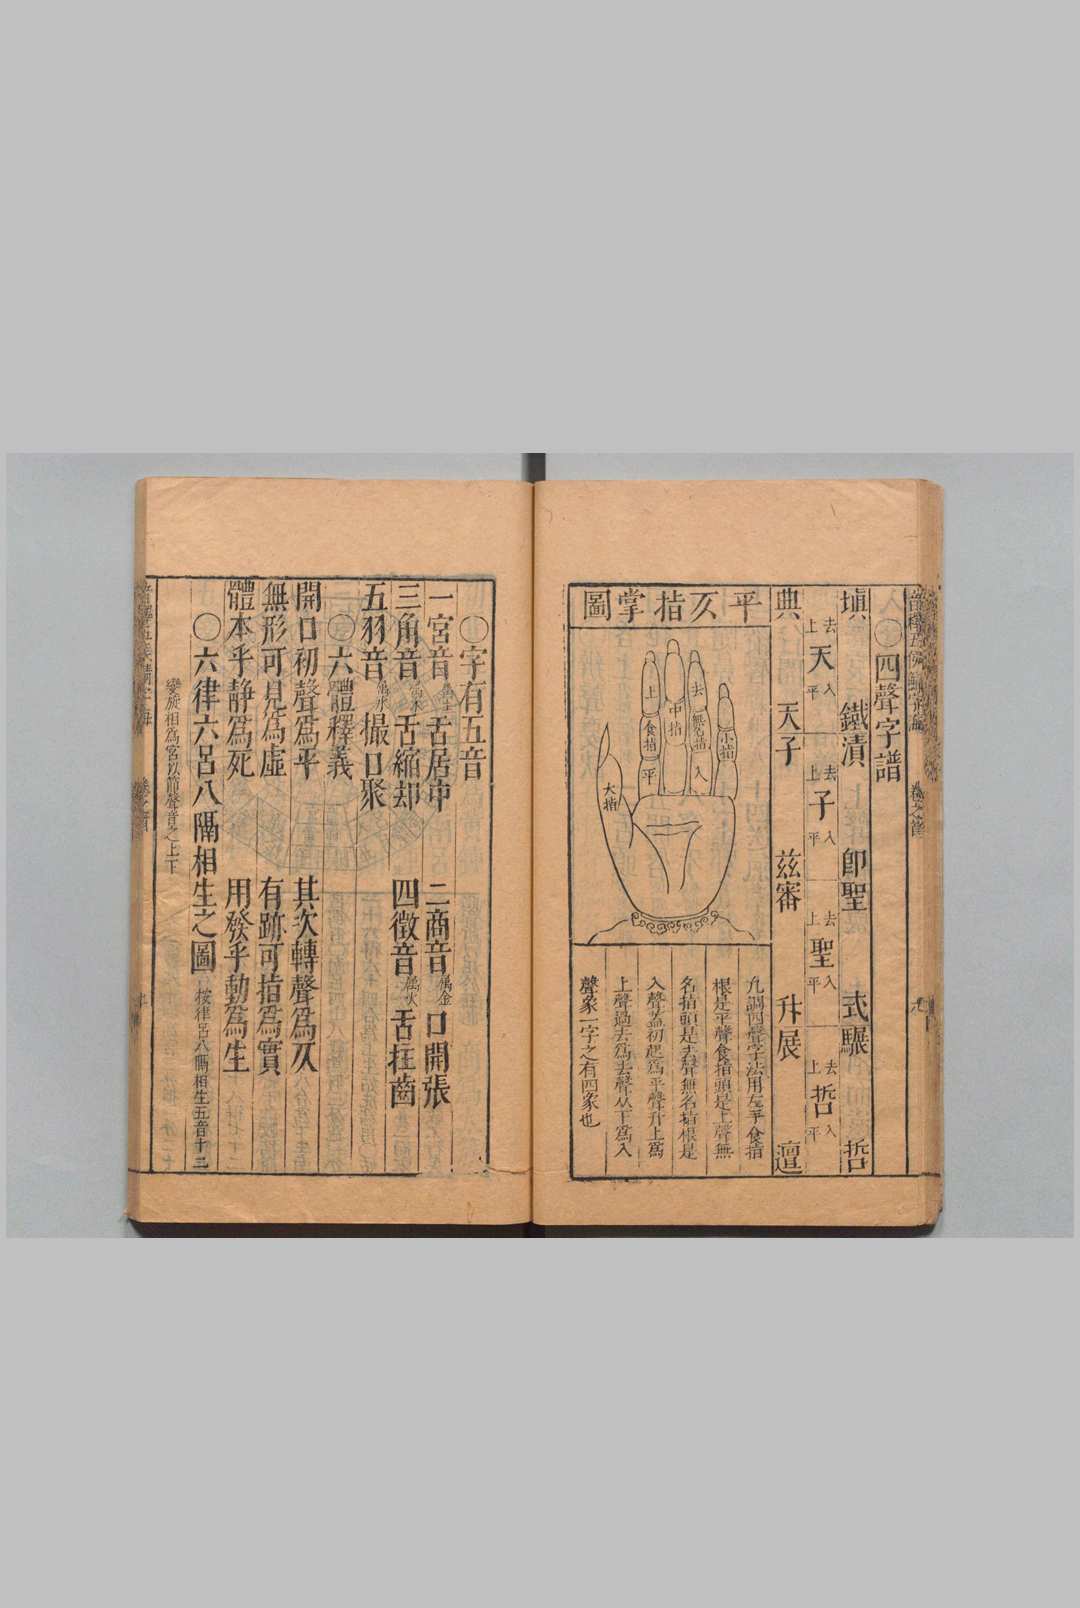 ○四聲字譜
塡 鐵瀆 卽聖 式驏 哲
去 入 去 入 去 入 去 入
天 子 聖 哲
上 平 上 平 上 平 上 平
典 天子 兹審 升展 邅
平仄指掌圖
上
食指
平
中指
去
無名指
入
小指
大指
凡調四聲字法用左手食指
根是平聲食指頭是上聲無
名指頭是去聲無名指根是
入聲蓋初起爲平聲升上爲
上聲過去爲去聲从下爲入
聲象一字之有四象也
○字有五音
一宮音屬土舌居中 二商音屬金口開張
三角音屬木舌縮却 四徵音屬火舌拄齒
五羽音屬水撮口聚
○六體釋義
開口初聲爲平 其次轉聲爲仄
無形可見爲虛 有跡可指爲實
體本乎静爲死 用發乎動爲生
○六律六呂八隔相生之圖 按律呂八隔相生五音十二
變旋相爲宮以節聲音之上下